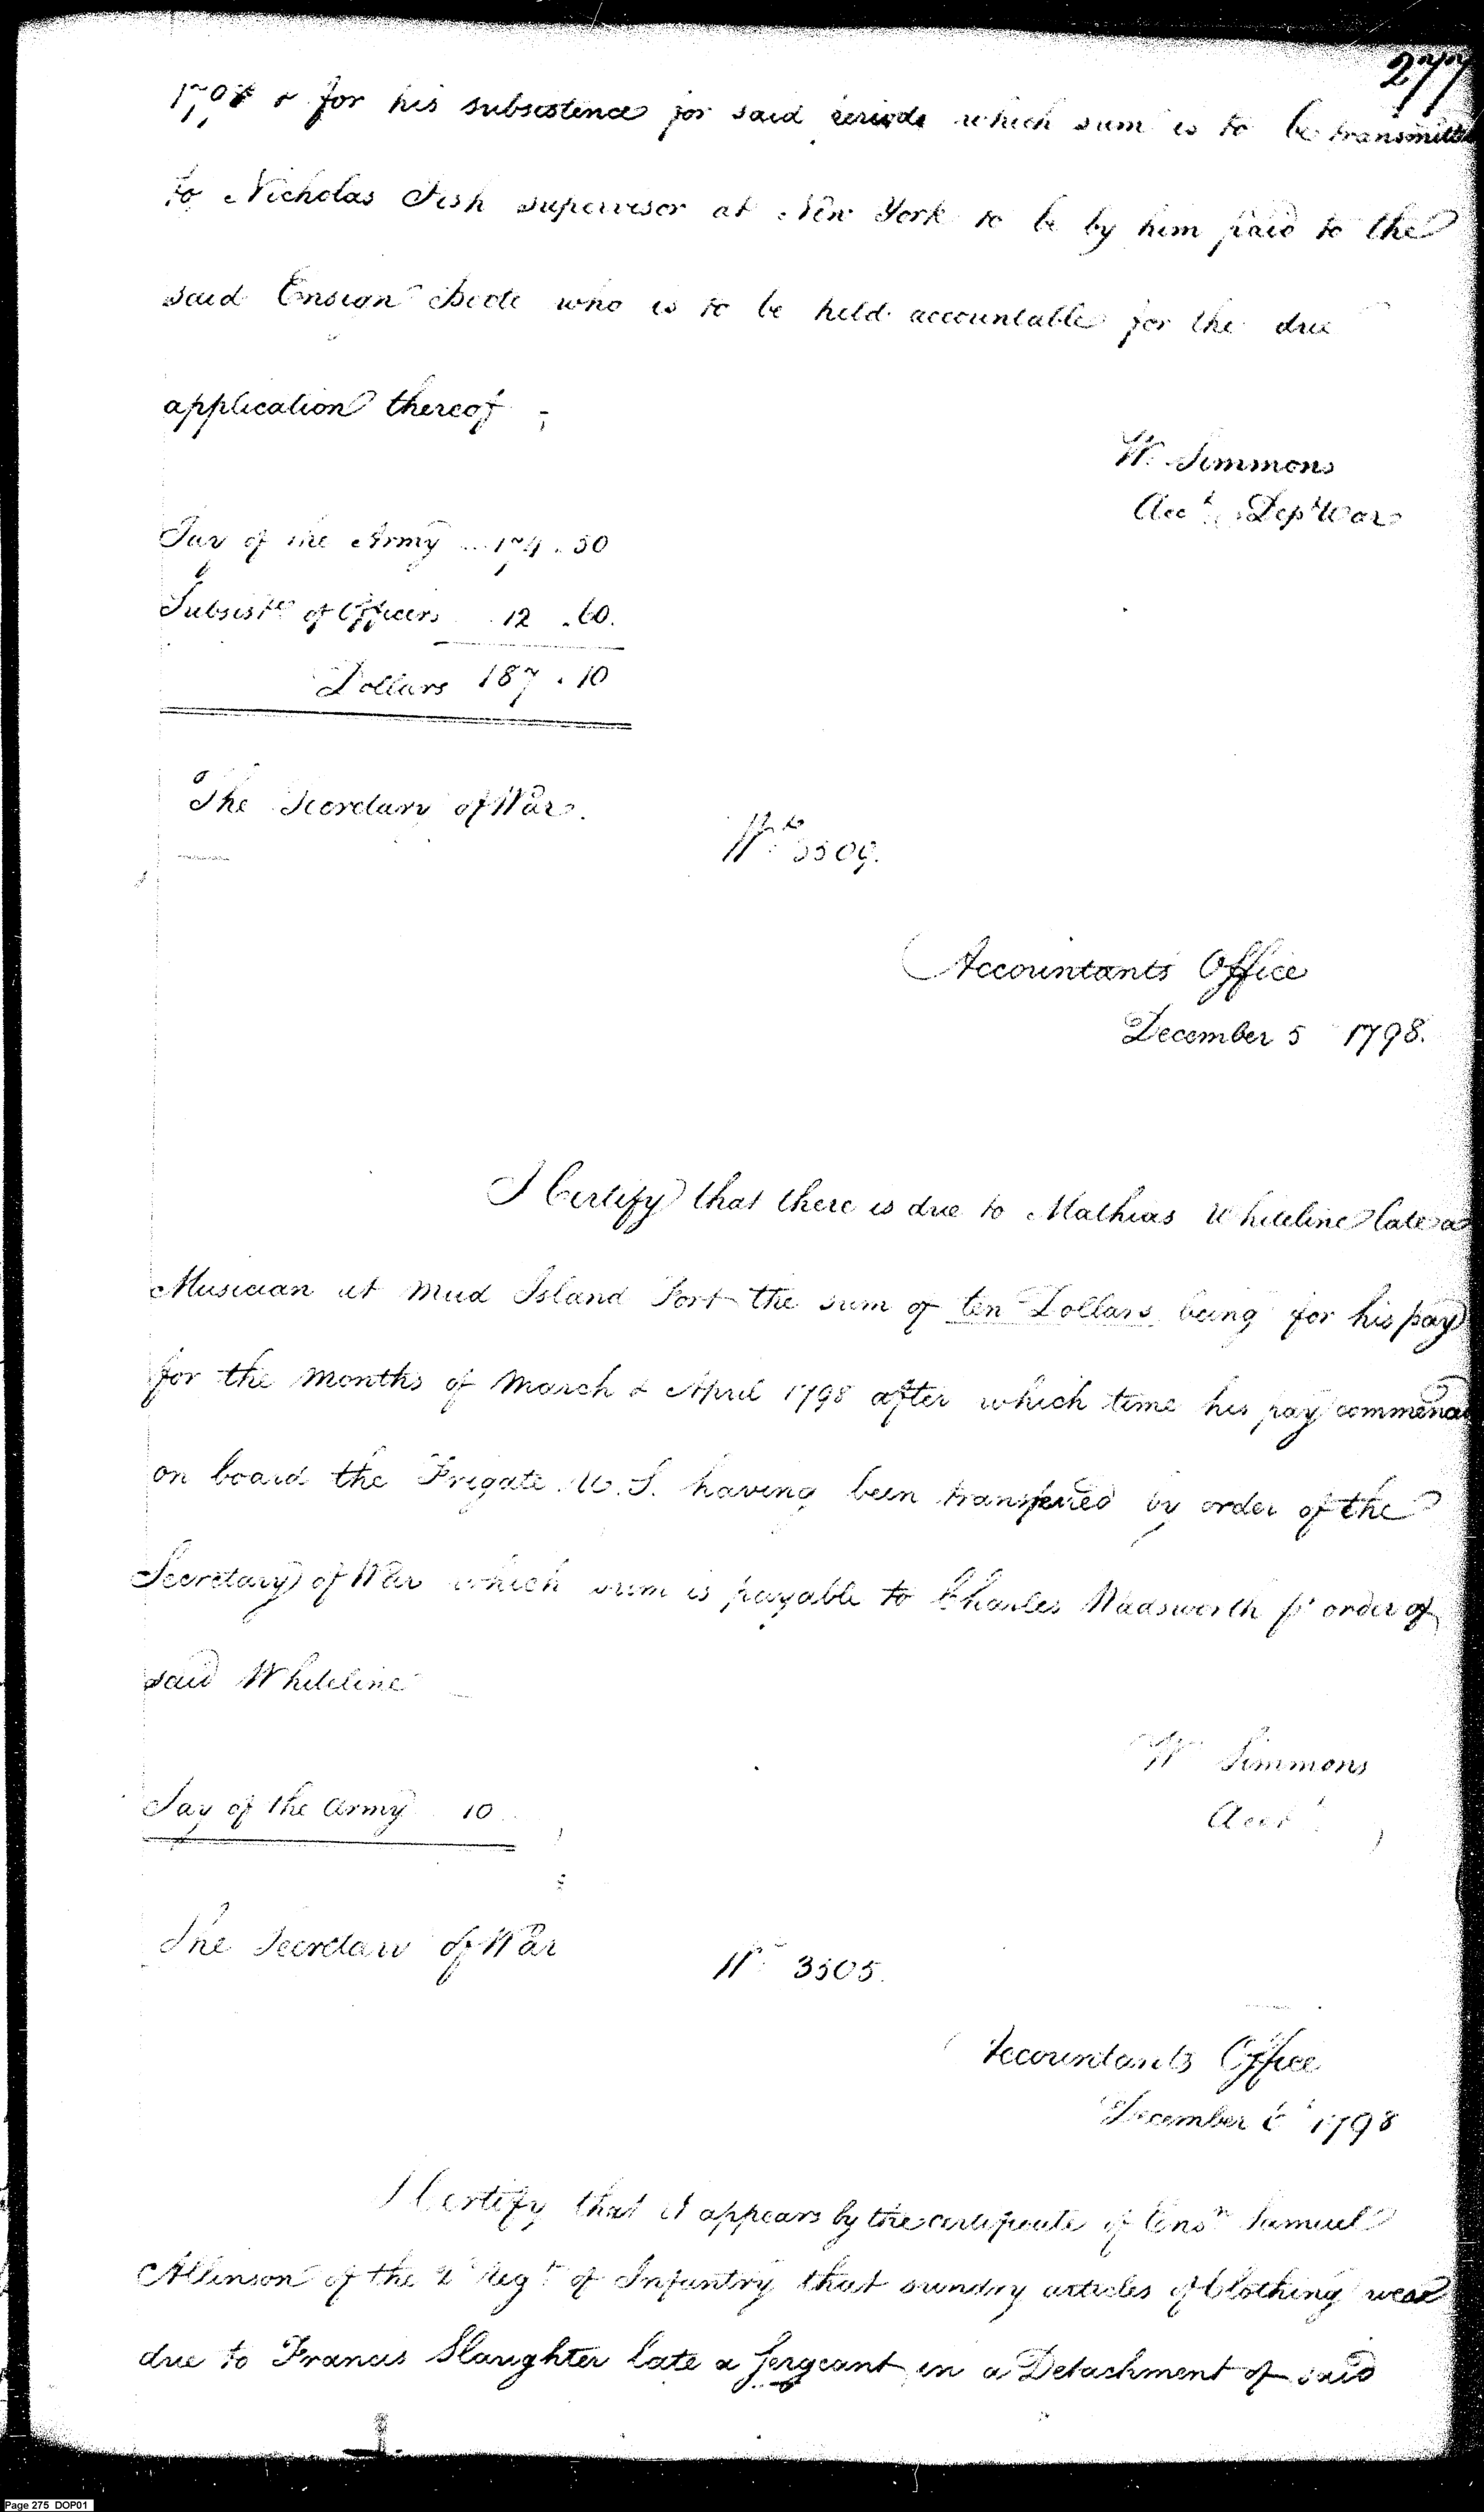 277
1798 & for his subsistence for said periods which sum is to be transmitted
to Nicholas Fish supervisor at New York to be by him paid to the
said Ensign who is to be held accountable for the due
application thereof ;
W. Simmons
Acct. Dept War
Pay of the Army 174.50
Subsistce of Officers 12.60.
Dollars 187.10
The Secretary of War.
No 3509.
Accountants Office
December 5 1798.
I Certify that there is due to Mathias Whiteline late a
Musician at Mud Island Fort the sum of ten Dollars being for his pay
for the months of March & April 1798 after which time his pay commenced
on board the Frigate U.S. having been transferred by order of the
Secretary of War which sum is payable to Charles Wadsworth pr order of
said Whiteline
W Simmons
Acct.
Pay of the Army 10
The Secretary of War
No 3505.
Accountants Office
December 6 1798
I Certify that it appears by the certificate of Ensn Samuel
Allinson of the 2d Regt of Infantry that sundry articles of Clothing wear
due to Francis Slaughter late a Sergeant in a Detachment of said
Page 275 DOP01